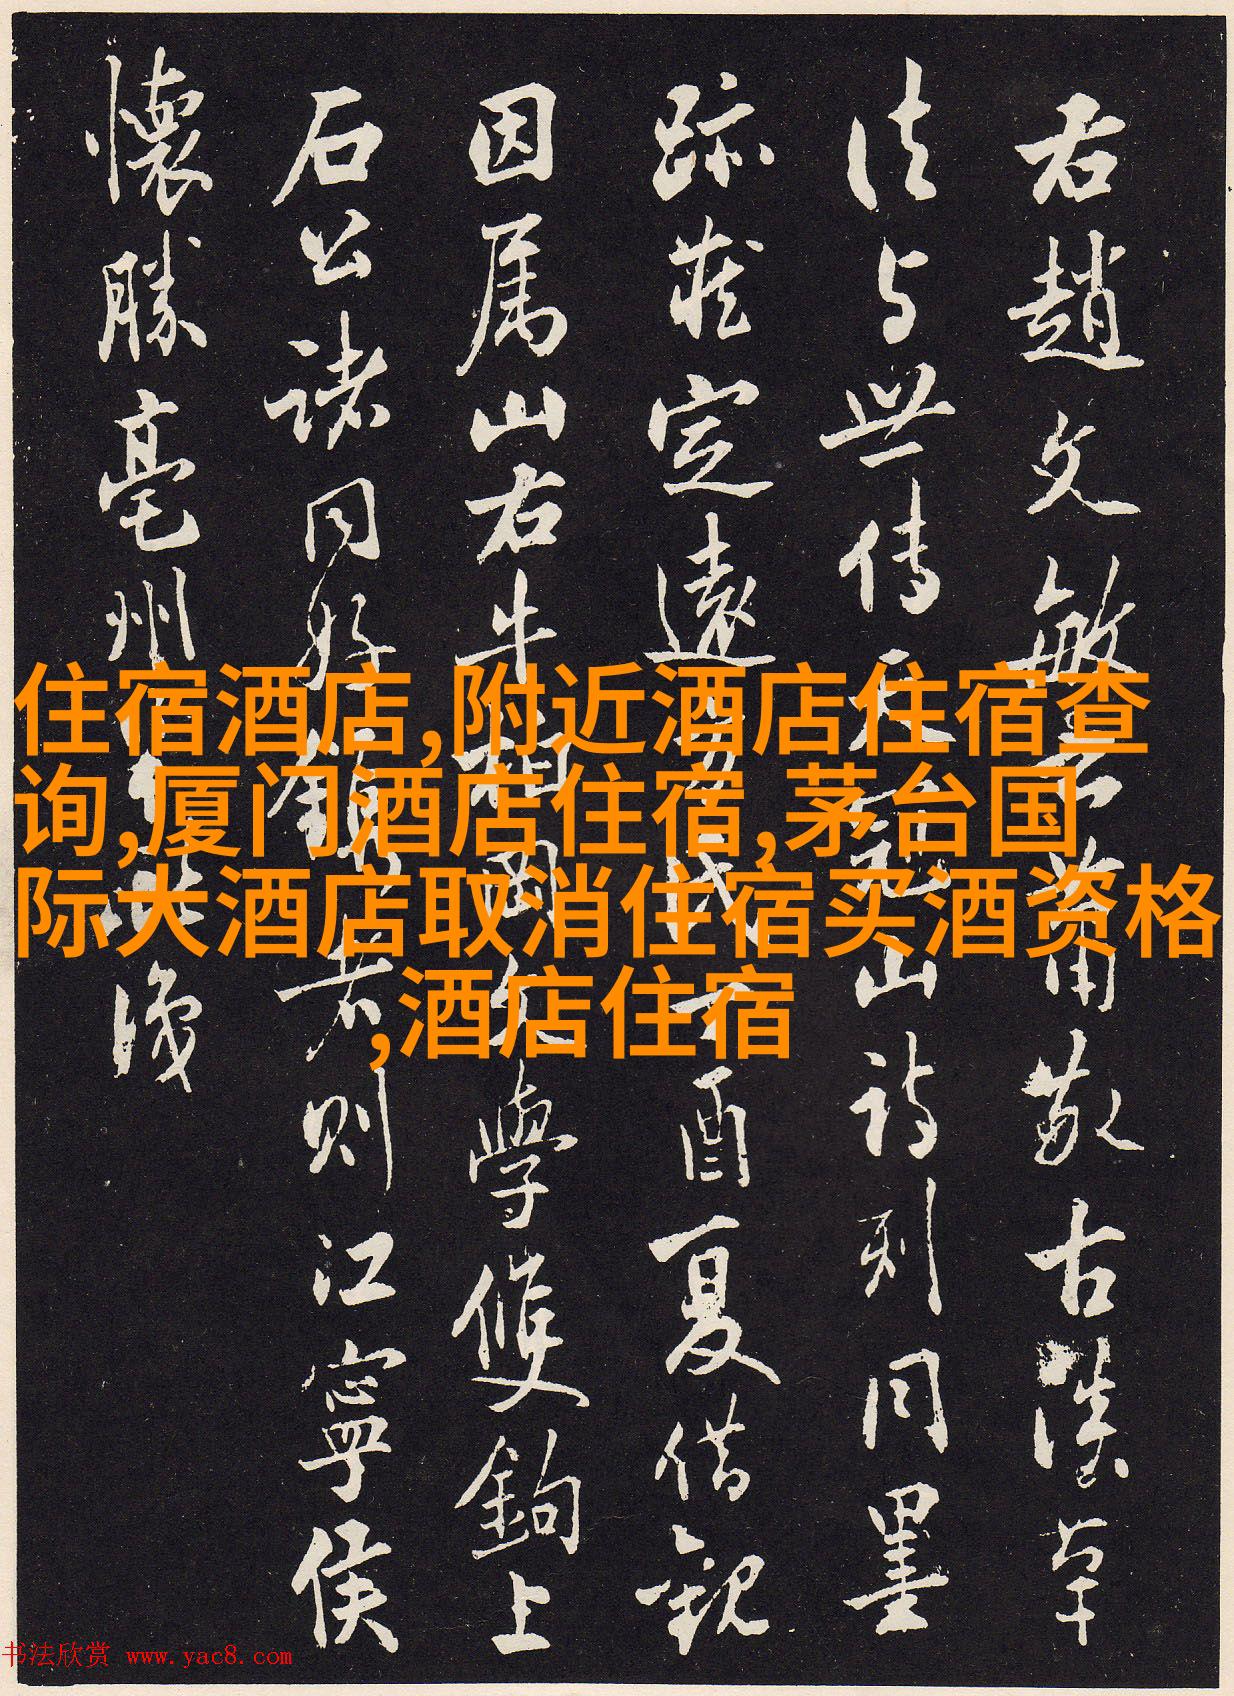 住宿酒店,附近酒店住宿查
询,厦门酒店住宿,茅台国
际大酒店取消住宿买酒资格
,酒店住宿
右趙文敏用敬古漢草
法与世傳天冠山詩刻同墨
跡藏定遠氏酉夏借觀
因属山右牛文學僕鉤上
石公諸同好者則江寧侯
懷勝亳州
书法欣赏 www.yac8.com